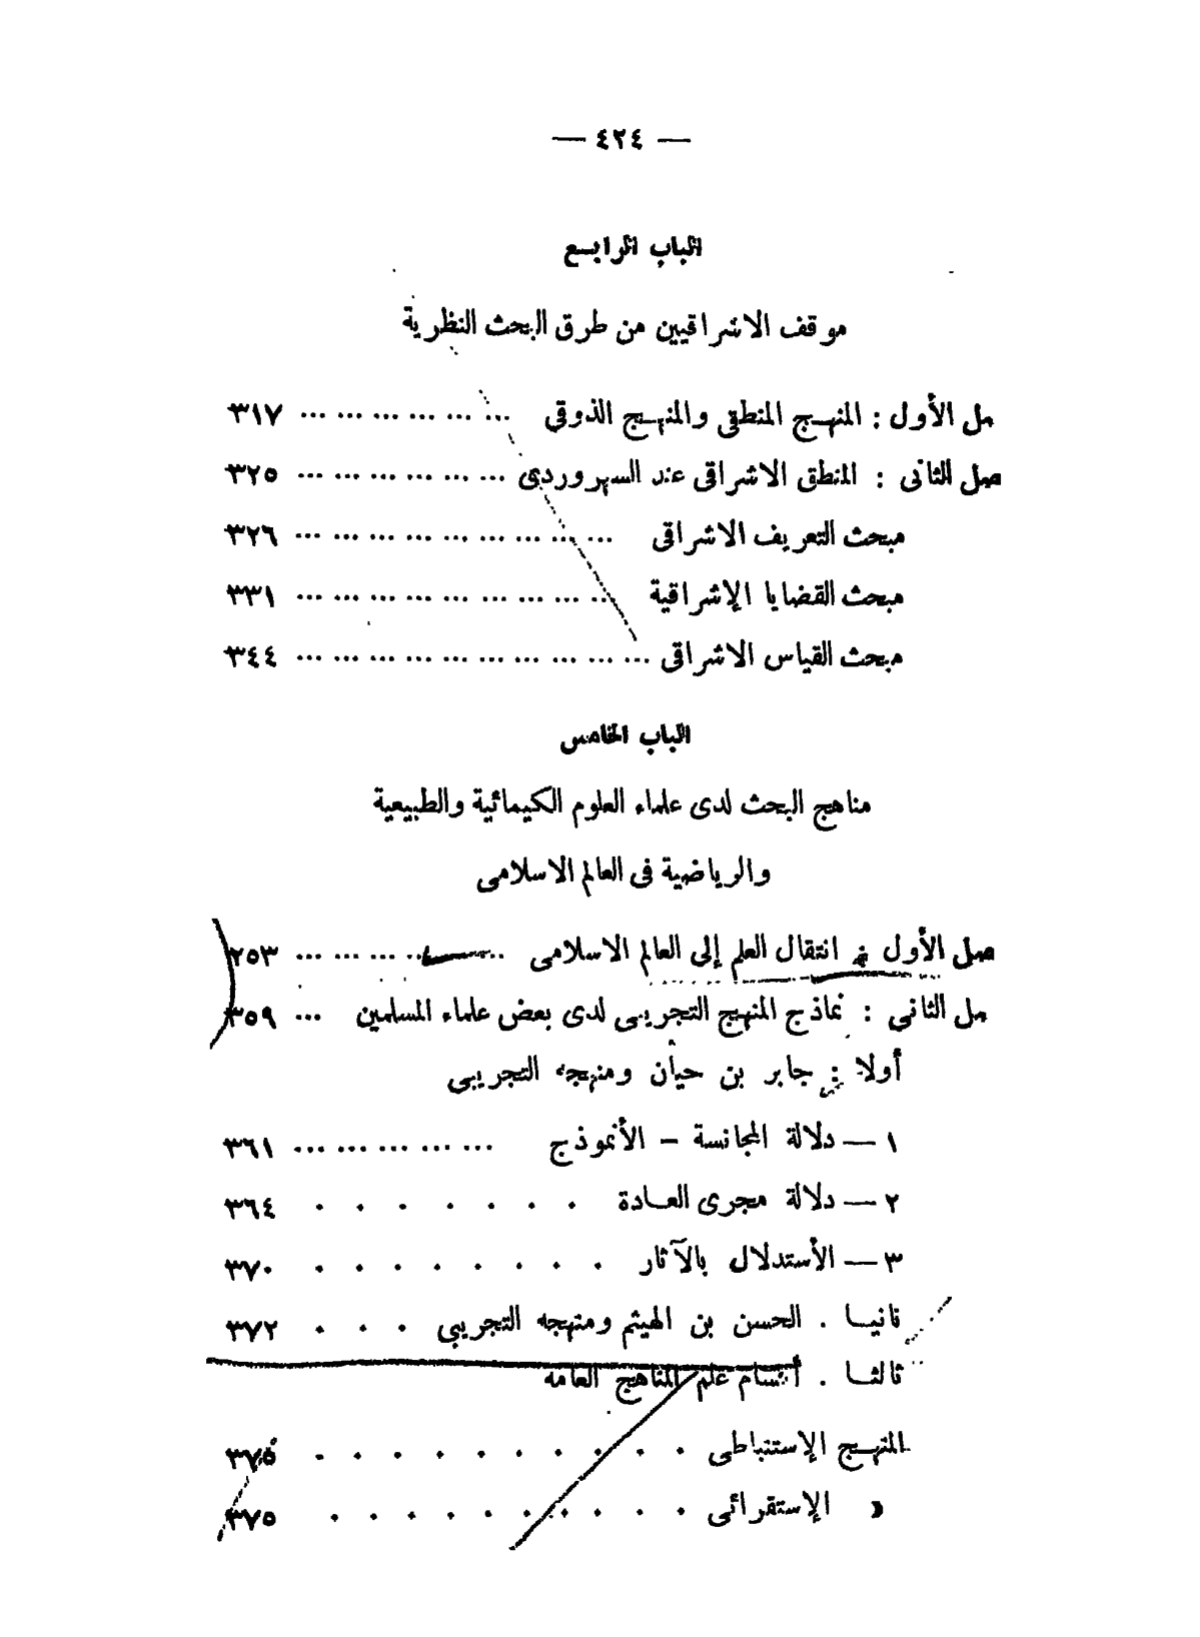 — ٤٢٤ —
الباب الرابع
موقف الاشراقيين من طرق البحث النظرية
صل الأول : المنهج المنطقى والمنهج الذوقي ... ... ... ... ... ... ٣١٧
صل الثانى : المنطق الاشراقى عند السهروردى ... ... ... ... ... ... ٣٢٥
مبحث التعريف الاشراقى ... ... ... ... ... ... ... ... ... ٣٢٦
مبحث القضايا الإشراقية ... ... ... ... ... ... ... ... ... ٣٣١
مبحث القياس الاشراقى ... ... ... ... ... ... ... ... ... ... ٣٤٤
الباب الخامس
مناهج البحث لدى علماء العلوم الكيمائية والطبيعية
والرياضية فى العالم الاسلامى
صل الأول : انتقال العلم إلى العالم الاسلامى ... ... ... ... ... ٢٥٣
صل الثاني : نماذج المنهج التجريبى لدى بعض علماء المسلمين ... ٣٥٩
أولا : جابر بن حيان ومنهجه التجريبى
١ — دلالة المجانسة – الأنموذج ... ... ... ... ... ٣٦١
٢ — دلالة مجرى العادة . . . . . . . ٣٦٤
٣ — الأستدلال بالآثار . . . . . . . . ٣٧٠
ثانيا . الحسن بن الهيثم ومنهجه التجريبي . . . ٣٧٢
ثالثا . أقسام علم المناهج العامه
المنهج الإستنباطى . . . . . . . . . . ٣٧٥
» الإستقرائى . . . . . . . . . . ٣٧٥